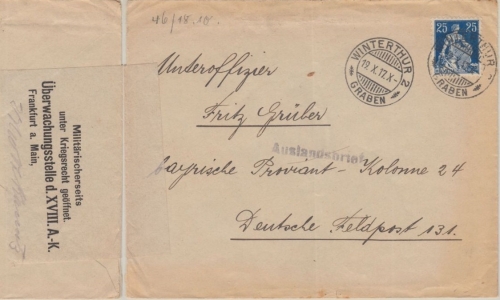 46/18.10.
25 25
WINTERTHUR 2
19.X.17.X-
GRABEN
Unteroffizier
Fritz Grüber
Auslandsbrief
Bayrische Proviant-Kolonne 24
Deutsche Feldpost 131.
Militärischerseits
unter Kriegsrecht geöffnet.
Überwachungsstelle d. XVIII. A.-K.
Frankfurt a. Main,